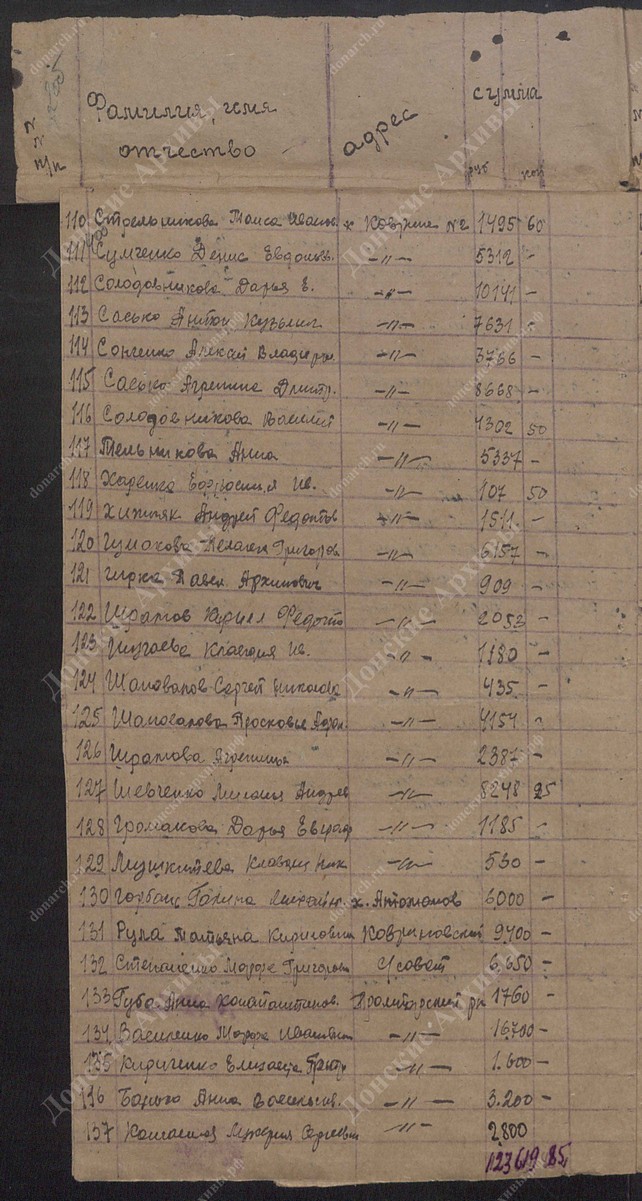 № п/п Фамилия, имя отчество адрес сумма
руб коп
110 Стрельникова Таиса Иванов. х Коврино №2 1495 60
111 Сумченко Денис Евдоким. -"- 5312 -
112 Солодовникова Дарья Е. -"- 10141 -
113 Сасько Антон Кузьмич -"- 7631 -
114 Сонченко Алексей Владимир. -"- 3766 -
115 Сасько Агрепина Дмитр. -"- 8668 -
116 Солодовникова Василий -"- 4302 50
117 Тельникова Анна -"- 5337 -
118 Ев Ив. -"- 107 50
119 Хижняк Андрей Федотов -"- 1511 -
120 Чумакова Пелагея Григоров -"- 6157 -
121 Чирка Павел Архипович -"- 909 -
122 Шратов Кирилл Федото -"- 2053 -
123 Клавдия Ив. -"- 1180 -
124 Шаповалов Сергей Никола -"- 435 -
125 Шаповалова Просковья -"- 4154 -
126 Шратова Агрепина -"- 2387 -
127 Шевченко Андрев -"- 8248 25
128 Громакова Дарья Евграф -"- 1185 -
129 Клавдия Ник -"- 530 -
130 Галина х. Антонов 6000 -
131 Рула Татьяна Кириловна Ковриновский 9400 -
132 Степаненко Марфа Григорьев с/совет 6,650 -
133 Губа Анна Пролитарский рн 1760 -
134 Василенко Марфа Ивановна -"- 16,700 -
135 Кириченко Елизавета -"- 1.600 -
136 Анна Васильев. -"- 3.200 -
137 Сергеевн -"- 2,800
123619 85
Донские Архивы
donarch.ru